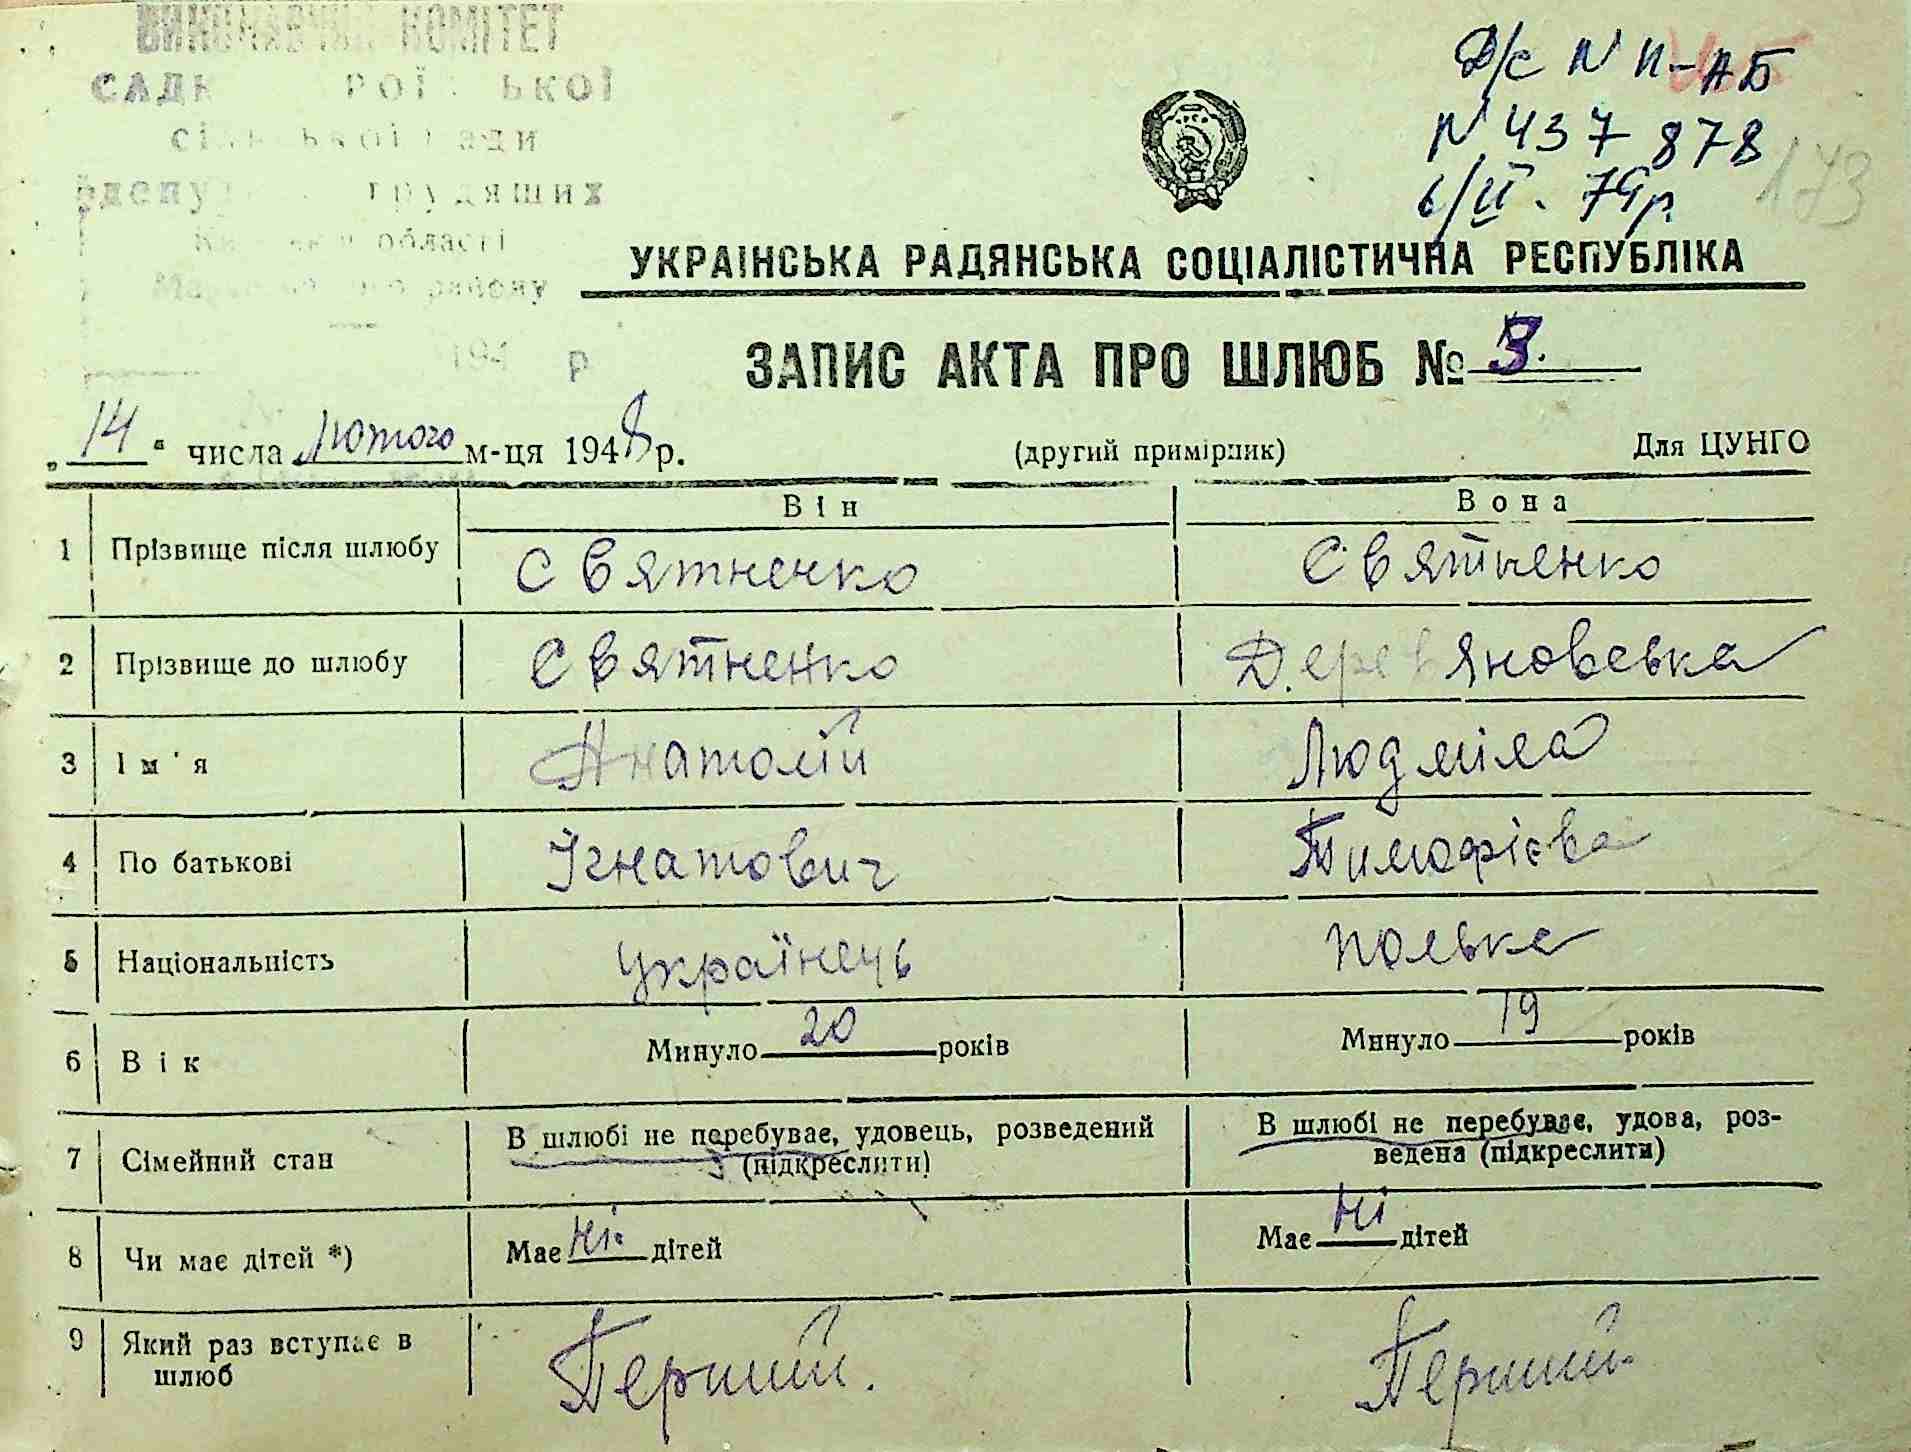 КОМІТЕТ
сільської ради
трудящих
області
району
194 р
Д/с N II-АБ
N 437 878
6/II. 79р.
173
УКРАЇНСЬКА РАДЯНСЬКА СОЦІАЛІСТИЧНА РЕСПУБЛІКА
ЗАПИС АКТА ПРО ШЛЮБ № 3.
„14" числа Лютого м-ця 1948 р. (другий примірник) Для ЦУНГО
Він Вона
1 Прізвище після шлюбу Святненко Святненко
2 Прізвище до шлюбу Святненко Деревяновська
3 Ім'я Анатолій Людміла
4 По батькові Ігнатович Тимофієва
5 Національність українець полька
6 Вік Минуло 20 років Минуло 19 років
7 Сімейний стан В шлюбі не перебуває, удовець, розведений (підкреслити) В шлюбі не перебуває, удова, роз-
ведена (підкреслити)
8 Чи має дітей *) Має ні дітей Має ні дітей
9 Який раз вступає в
шлюб Перший. Перший